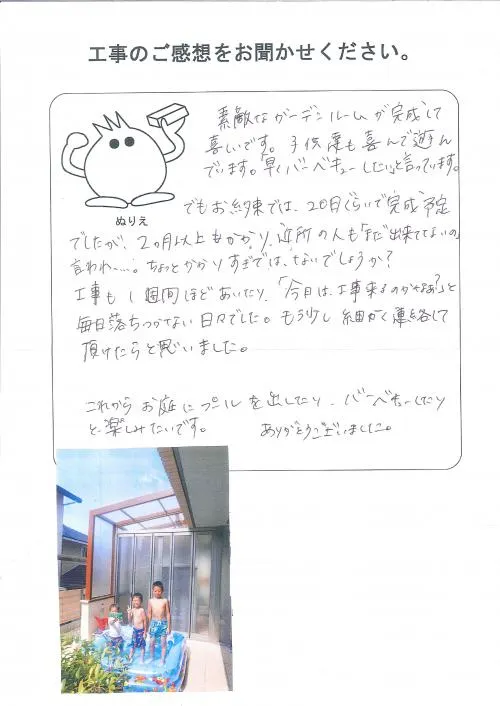 工事のご感想をお聞かせください。
素敵なガーデンルームが完成して
喜しいです。子供達も喜んで遊ん
でいます。「早くバーベキューしたい」と言っています。
ぬりえ
でもお約束では、20日ぐらいで完成予定
でしたが、2ヵ月以上もかかり、近所の人も「まだ出来てないの」
言われ…。ちょっとかかりすぎでは、ないでしょうか?
工事も1週間ほどあいたり、「今日は、工事来るのかなぁ?」と
毎日落ちつかない日々でした。もう少し細かく連絡して
頂けたらと思いました。
これからお庭にプールを出したり、バーベキューしたり
と楽しみたいです。 ありがとうございました。